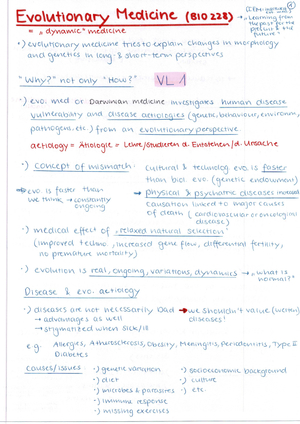 Evolutionary Medicine (BIO 228)
= "dynamic" medicine
→ Learning from
the past for the
present & the
future
·) evolutionary medicine tries to explain changes in morphology
and genetics in long- & short-term perspectives
"Why?" not only "How?"
VL 1
·) evo. med or Darwinian medicine investigates human disease
vulnerability and disease aetiologies (genetic, behaviour, environm.,
pathogens, etc.) from an evolutionary perspective
aetiology = Ätiologie = Lehre/Studieren d. Entstehen/d. Ursache
·) concept of mismatch:
cultural & technolog. evo. is faster
than biol. evo. (genetic endowment)
→ evo is faster than
we think → constantly
ongoing
→ physical & psychiatric diseases instead
causation linked to major causes
of death (cardiovascular or oncological
disease)
·) medical effect of "relaxed natural selection"
(improved techno., increased gene flow, differential fertility,
no premature mortality)
·) evolution is real, ongoing, variations, dynamics → "what is
normal?"
Disease & evo. aetiology
·) diseases are not necessarily bad → we shouldn't value (werten)
diseases!
→ advantages as well
→ stigmatized when sick/ill
e.g. Allergies, Atherosclerosis, Obesity, Meningitis, Periodontitis, Type II
Diabetes
causes/issues:
·) genetic variation
·) diet
·) microbes & parasites
·) immune response
·) missing exercises
·) socioeconomic background
·) culture
·) etc.